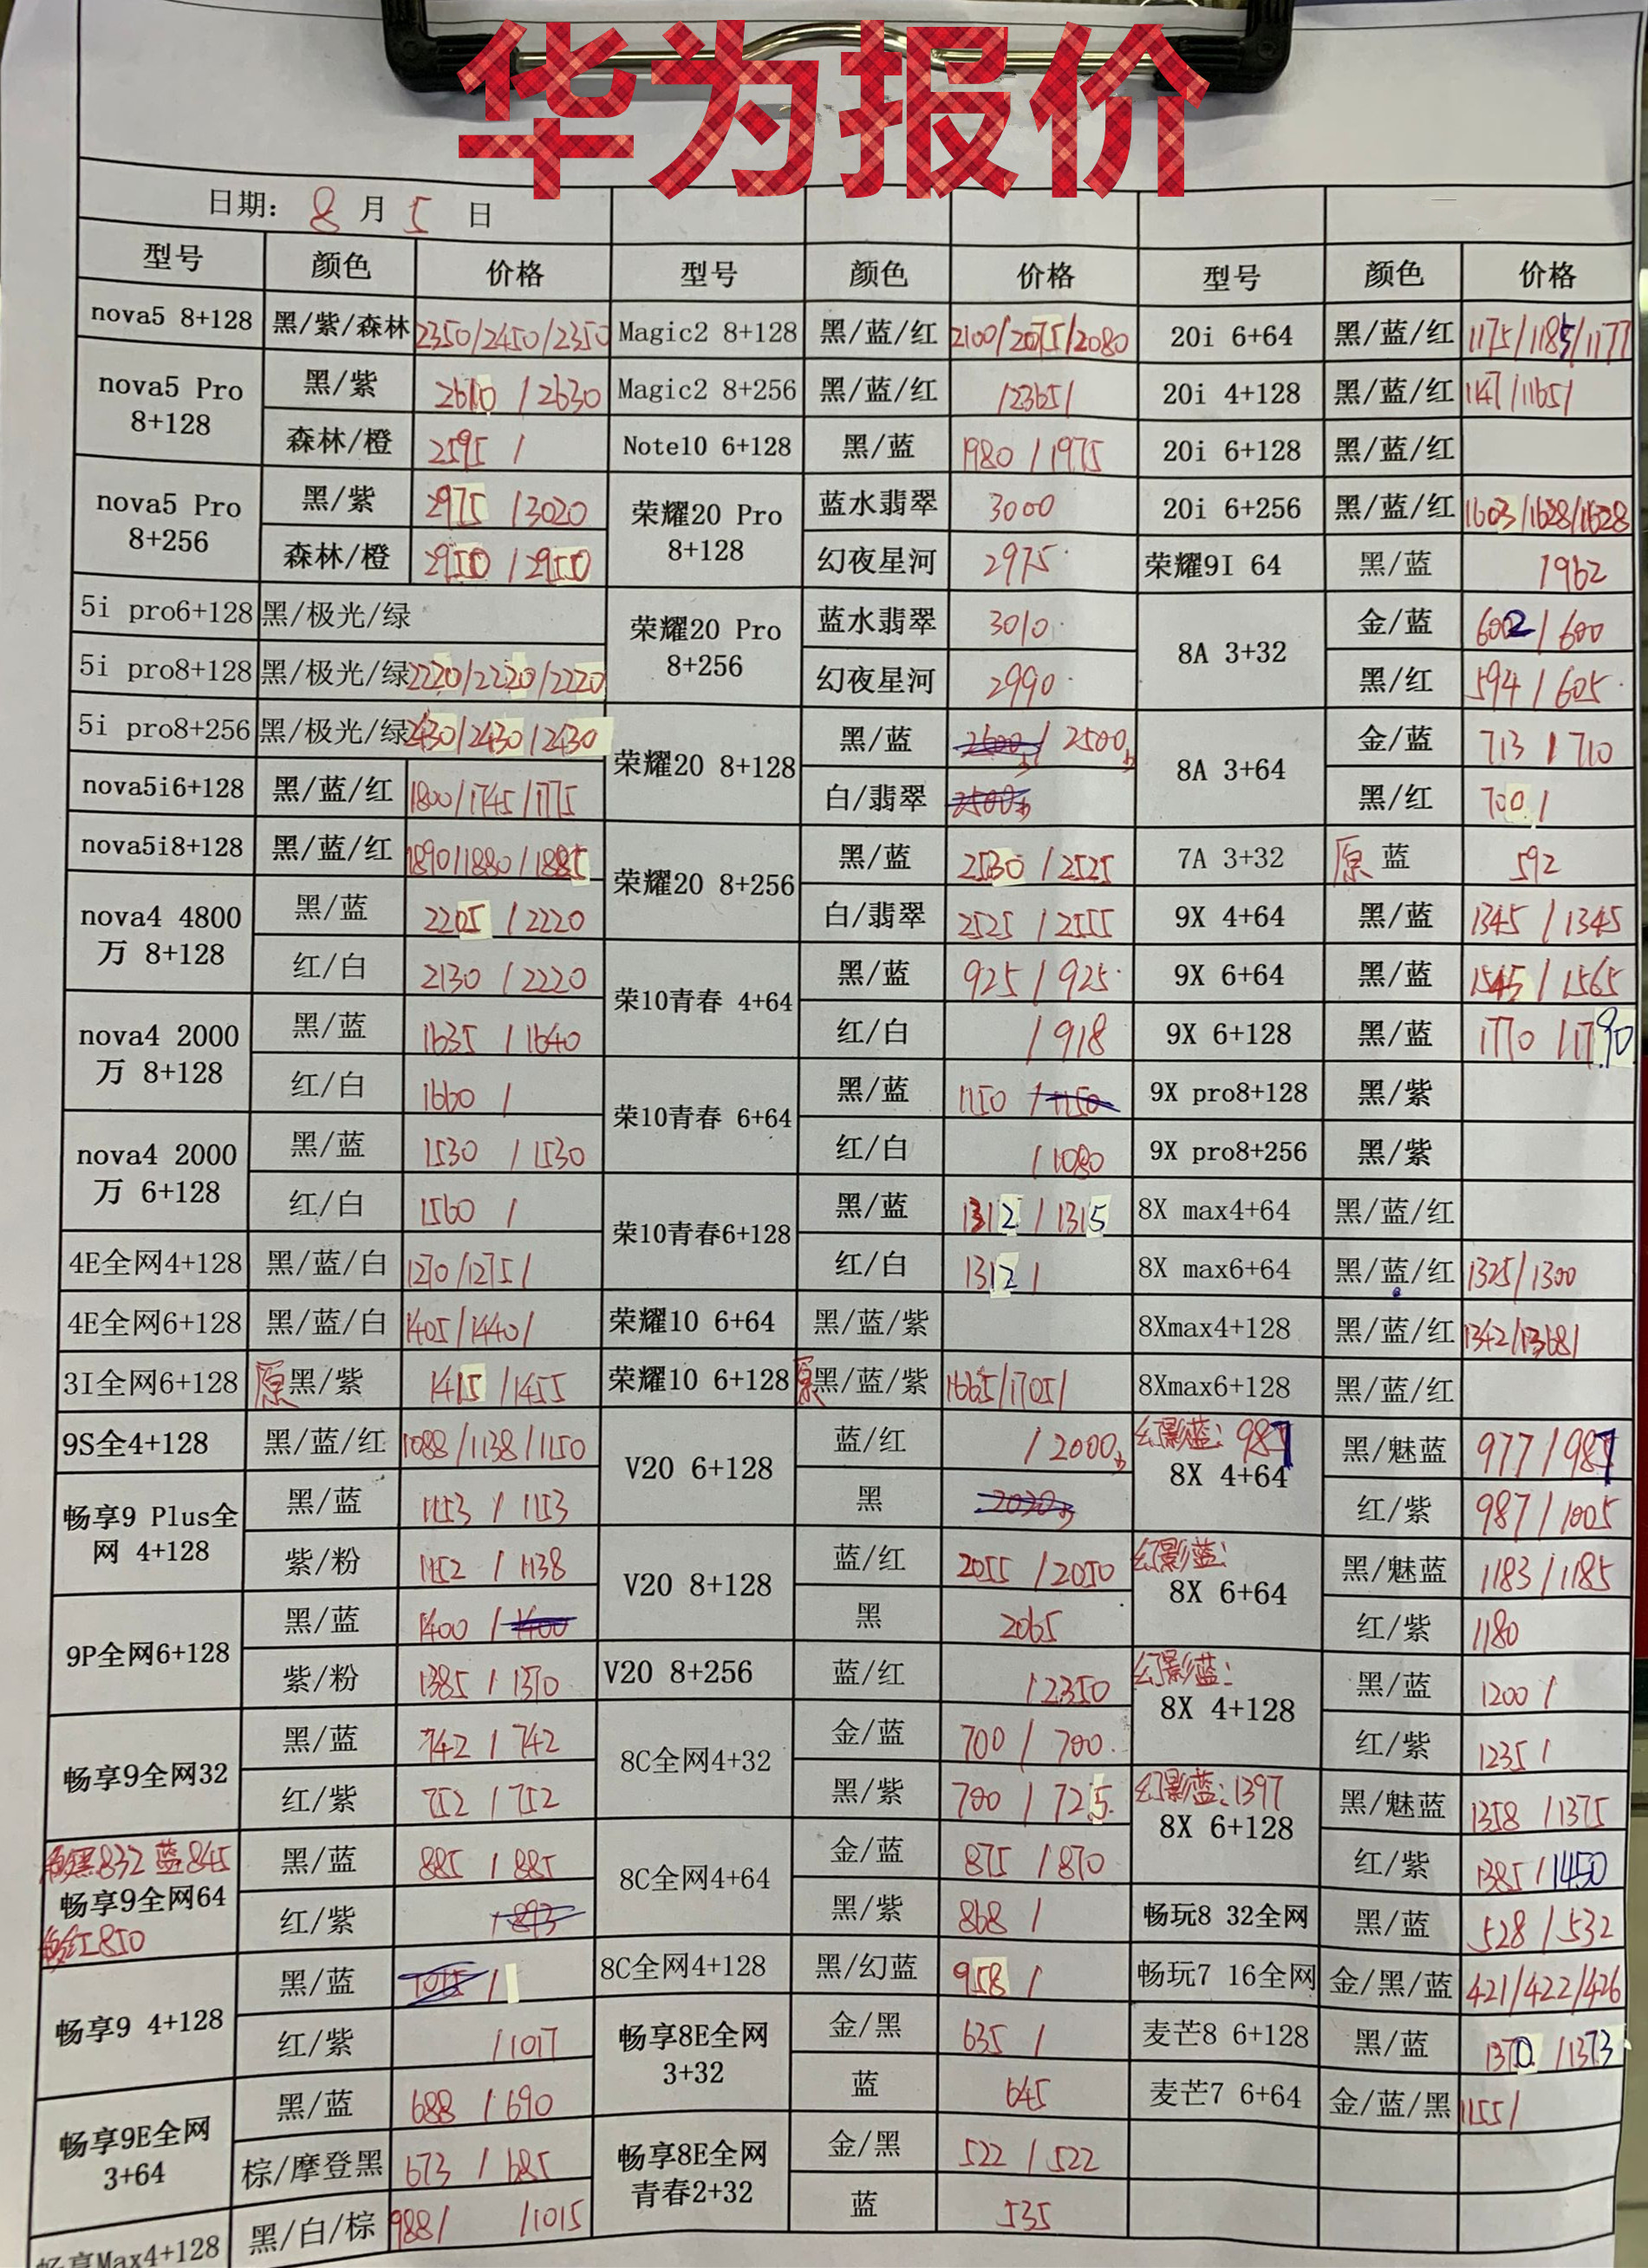 华为报价
日期： 8 月 5 日
型号 颜色 价格 型号 颜色 价格 型号 颜色 价格
nova5 8+128 黑/紫/森林 2350/2450/2350
nova5 Pro 8+128 黑/紫 2610 / 2630
森林/橙 2595 /
nova5 Pro 8+256 黑/紫 2975 / 3020
森林/橙 2950 / 2950
5i pro6+128 黑/极光/绿
5i pro8+128 黑/极光/绿 2220/2220/2220
5i pro8+256 黑/极光/绿 2430/2430/2430
nova5i6+128 黑/蓝/红 1800/1745/1775
nova5i8+128 黑/蓝/红 1890/1880/1885
nova4 4800万 8+128 黑/蓝 2205 / 2220
红/白 2130 / 2220
nova4 2000万 8+128 黑/蓝 1635 / 1640
红/白 1660 /
nova4 2000万 6+128 黑/蓝 1530 / 1530
红/白 1560 /
4E全网4+128 黑/蓝/白 1270/1275/
4E全网6+128 黑/蓝/白 1405/1440/
3I全网6+128 原黑/紫 1415 / 1455
9S全4+128 黑/蓝/红 1088/1138/1150
畅享9 Plus全网 4+128 黑/蓝 1153 / 1153
紫/粉 1152 / 1138
9P全网6+128 黑/蓝 1400 / 1400
紫/粉 1385 / 1370
畅享9全网32 黑/蓝 742 / 742
红/紫 752 / 752
黑832 蓝845
畅享9全网64 黑/蓝 885 / 885
红850
红/紫 / 893
畅享9 4+128 黑/蓝 /
红/紫 / 1017
畅享9E全网 3+64 黑/蓝 688 / 690
棕/摩登黑 673 / 685
畅享Max4+128 黑/白/棕 988/ /1015
Magic2 8+128 黑/蓝/红 2100/2075/2080
Magic2 8+256 黑/蓝/红 /2365/
Note10 6+128 黑/蓝 1980 / 1975
荣耀20 Pro 8+128 蓝水翡翠 3000
幻夜星河 2975
荣耀20 Pro 8+256 蓝水翡翠 3010
幻夜星河 2990
荣耀20 8+128 黑/蓝 2500 / 2500
白/翡翠 2500
荣耀20 8+256 黑/蓝 2530 / 2525
白/翡翠 2525 / 2555
荣10青春 4+64 黑/蓝 925 / 925
红/白 / 918
荣10青春 6+64 黑/蓝 1150 / 1150
红/白 / 1080
荣10青春6+128 黑/蓝 1312 / 1315
红/白 1312 /
荣耀10 6+64 黑/蓝/紫
荣耀10 6+128 原黑/蓝/紫 1665/1705/
V20 6+128 蓝/红 / 2000
黑 2020
V20 8+128 蓝/红 2055 / 2050
黑 2065
V20 8+256 蓝/红 / 2350
8C全网4+32 金/蓝 700 / 700
黑/紫 700 / 725
8C全网4+64 金/蓝 875 / 870
黑/紫 868 /
8C全网4+128 黑/幻蓝 958 /
畅享8E全网 3+32 金/黑 635 /
蓝 645
畅享8E全网 青春2+32 金/黑 522 / 522
蓝 535
20i 6+64 黑/蓝/红 1175/1185/1177
20i 4+128 黑/蓝/红 1147/1165/
20i 6+128 黑/蓝/红
20i 6+256 黑/蓝/红 1603/1628/1628
荣耀9I 64 黑/蓝 1962
8A 3+32 金/蓝 602 / 600
黑/红 594 / 605
8A 3+64 金/蓝 713 / 710
黑/红 700 /
7A 3+32 原 蓝 592
9X 4+64 黑/蓝 1345 / 1345
9X 6+64 黑/蓝 1545 / 1565
9X 6+128 黑/蓝 1770 / 1790
9X pro8+128 黑/紫
9X pro8+256 黑/紫
8X max4+64 黑/蓝/红
8X max6+64 黑/蓝/红 1325/1300
8Xmax4+128 黑/蓝/红 1342/1368/
8Xmax6+128 黑/蓝/红
幻影蓝：987
8X 4+64 黑/魅蓝 977 / 987
红/紫 987 / 1005
幻影蓝：
8X 6+64 黑/魅蓝 1183 / 1185
红/紫 1180
幻影蓝：
8X 4+128 黑/蓝 1200 /
红/紫 1235 /
幻影蓝：1397
8X 6+128 黑/魅蓝 1358 / 1375
红/紫 1385 / 1450
畅玩8 32全网 黑/蓝 528 / 532
畅玩7 16全网 金/黑/蓝 421/422/426
麦芒8 6+128 黑/蓝 1370 / 1373
麦芒7 6+64 金/蓝/黑 1155/